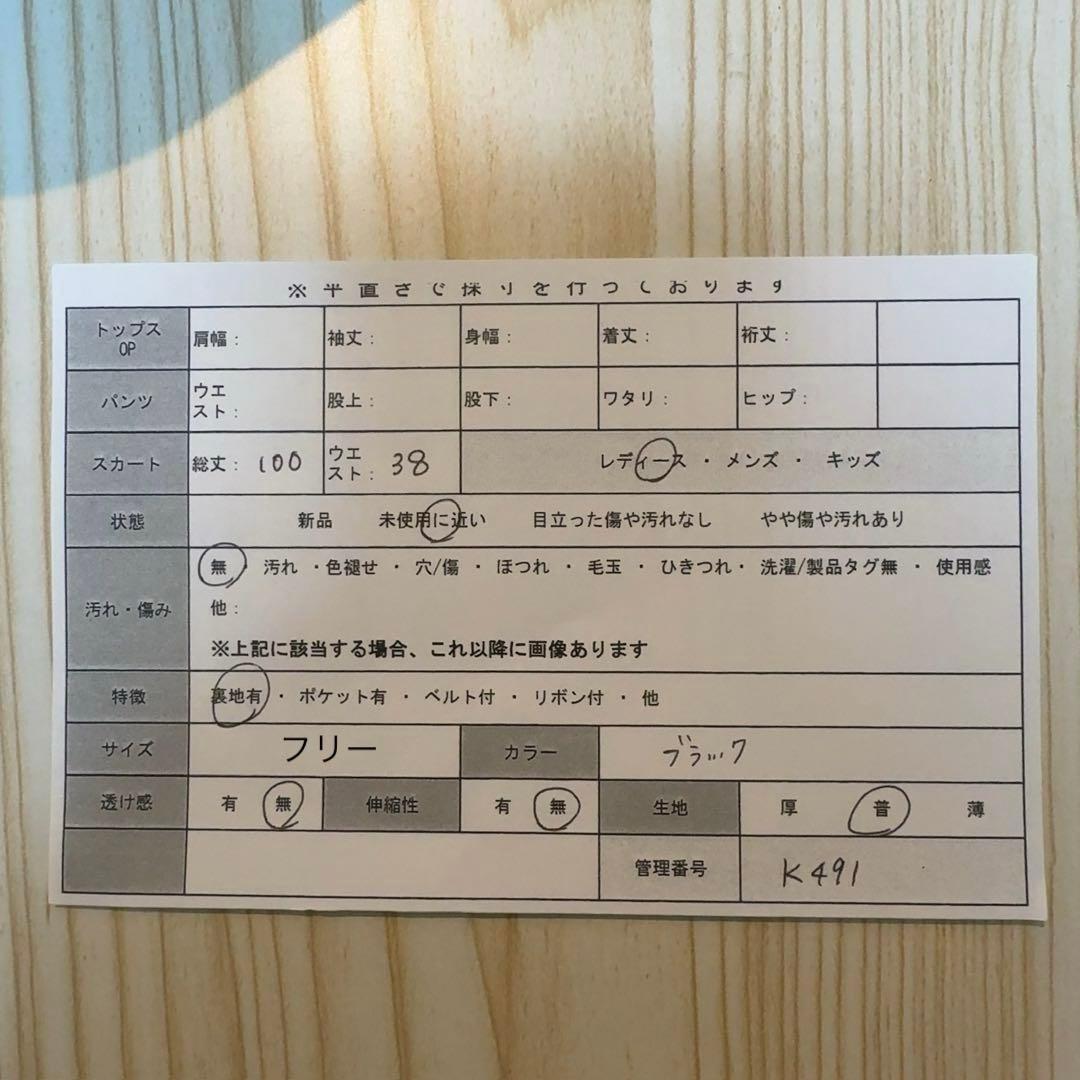 ※平置きで採寸を行っております
トップス OP 肩幅： 袖丈： 身幅： 着丈： 裄丈：
パンツ ウエスト： 股上： 股下： ワタリ： ヒップ：
スカート 総丈：100 ウエスト：38 レディース ・ メンズ ・ キッズ
状態 新品 未使用に近い 目立った傷や汚れなし やや傷や汚れあり
汚れ・傷み 無 ・ 汚れ ・色褪せ ・ 穴/傷 ・ ほつれ ・ 毛玉 ・ ひきつれ・ 洗濯/製品タグ無 ・ 使用感
他：
※上記に該当する場合、これ以降に画像あります
特徴 裏地有 ・ ポケット有 ・ ベルト付 ・ リボン付 ・ 他
サイズ フリー カラー ブラック
透け感 有 無 伸縮性 有 無 生地 厚 普 薄
管理番号 K491